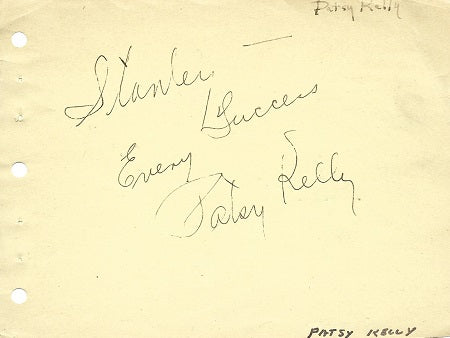 Patsy Kelly
Stanley —
Success
Every
Patsy Kelly
PATSY KELLY